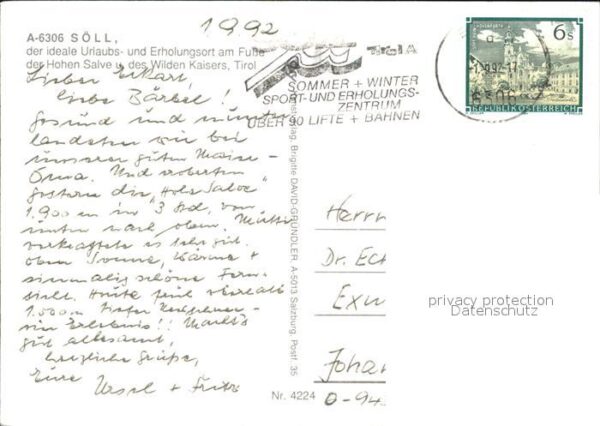 1992
A-6306 SÖLL,
der ideale Urlaubs- und Erholungsort am Fuße
der Hohen Salve u. des Wilden Kaisers, Tirol
Lieber Eckart,
liebe Bärbel!
Gesund und munter
landeten wir bei
unserer guten Maise-
Oma. Und eroberten
gestern die „Hohe Salve"
1.900 m in 3 Std. von
unten nach oben. Mutti
verkraftete es sehr gut.
oben Sonne, Wärme +
einmalig schöne Fern-
sicht. Heute
1.000 m tiefer
ein Erlebnis!! Macht's
gut allesamt,
herzliche Grüße,
Eure Ursel + Fritz
Tirol
SOMMER + WINTER
SPORT- UND ERHOLUNGS-
ZENTRUM
ÜBER 90 LIFTE + BAHNEN
6306
6 S
REPUBLIK ÖSTERREICH
Brigitte DAVID-GRÜNDLER A-5013 Salzburg, Postf. 35
Nr. 4224
Herrn
Dr. Eck
Exn
Johan
D-94
privacy protection
Datenschutz